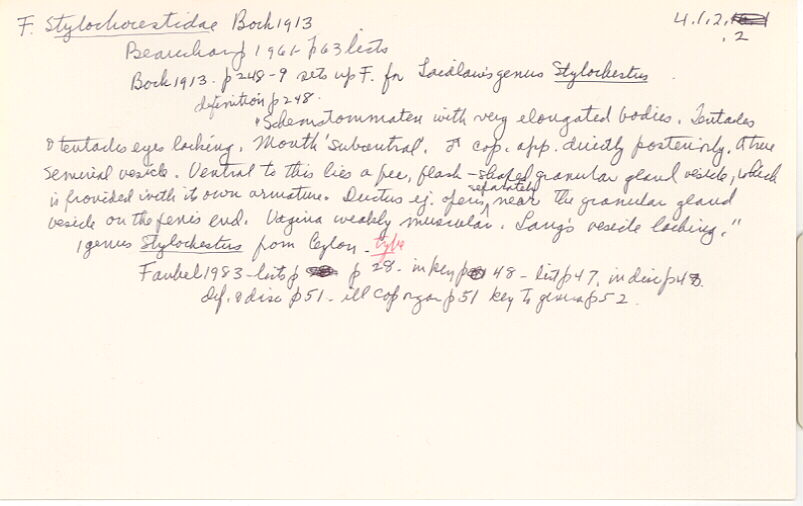 F. Stylochocestidae Bock 1913 4.1.2.
.2
Beauchamp 1961- p63 lists
Bock 1913. p248-9 sets up F. for Laidlaw's genus Stylochestus
definition p248.
"Schematommaten with very elongated bodies. Tentacles
& tentacles eyes lacking. Mouth 'subcentral'. ♂ cop. app. directly posteriorly. A true
seminal vesicle. Ventral to this lies a free, flask-shaped granular gland vesicle, which
is provided with it own armature. Ductus ej. opens separately near the granular gland
vesicle on the penis end. Vagina weakly muscular. Lang's vesicle lacking."
1 genus Stylochestus from Ceylon - type
Faubel 1983 - lists p 28. in key p 48 - list p47, in disc p48.
Def. & disc p51 - ill cop organ p51 key to genera p52.